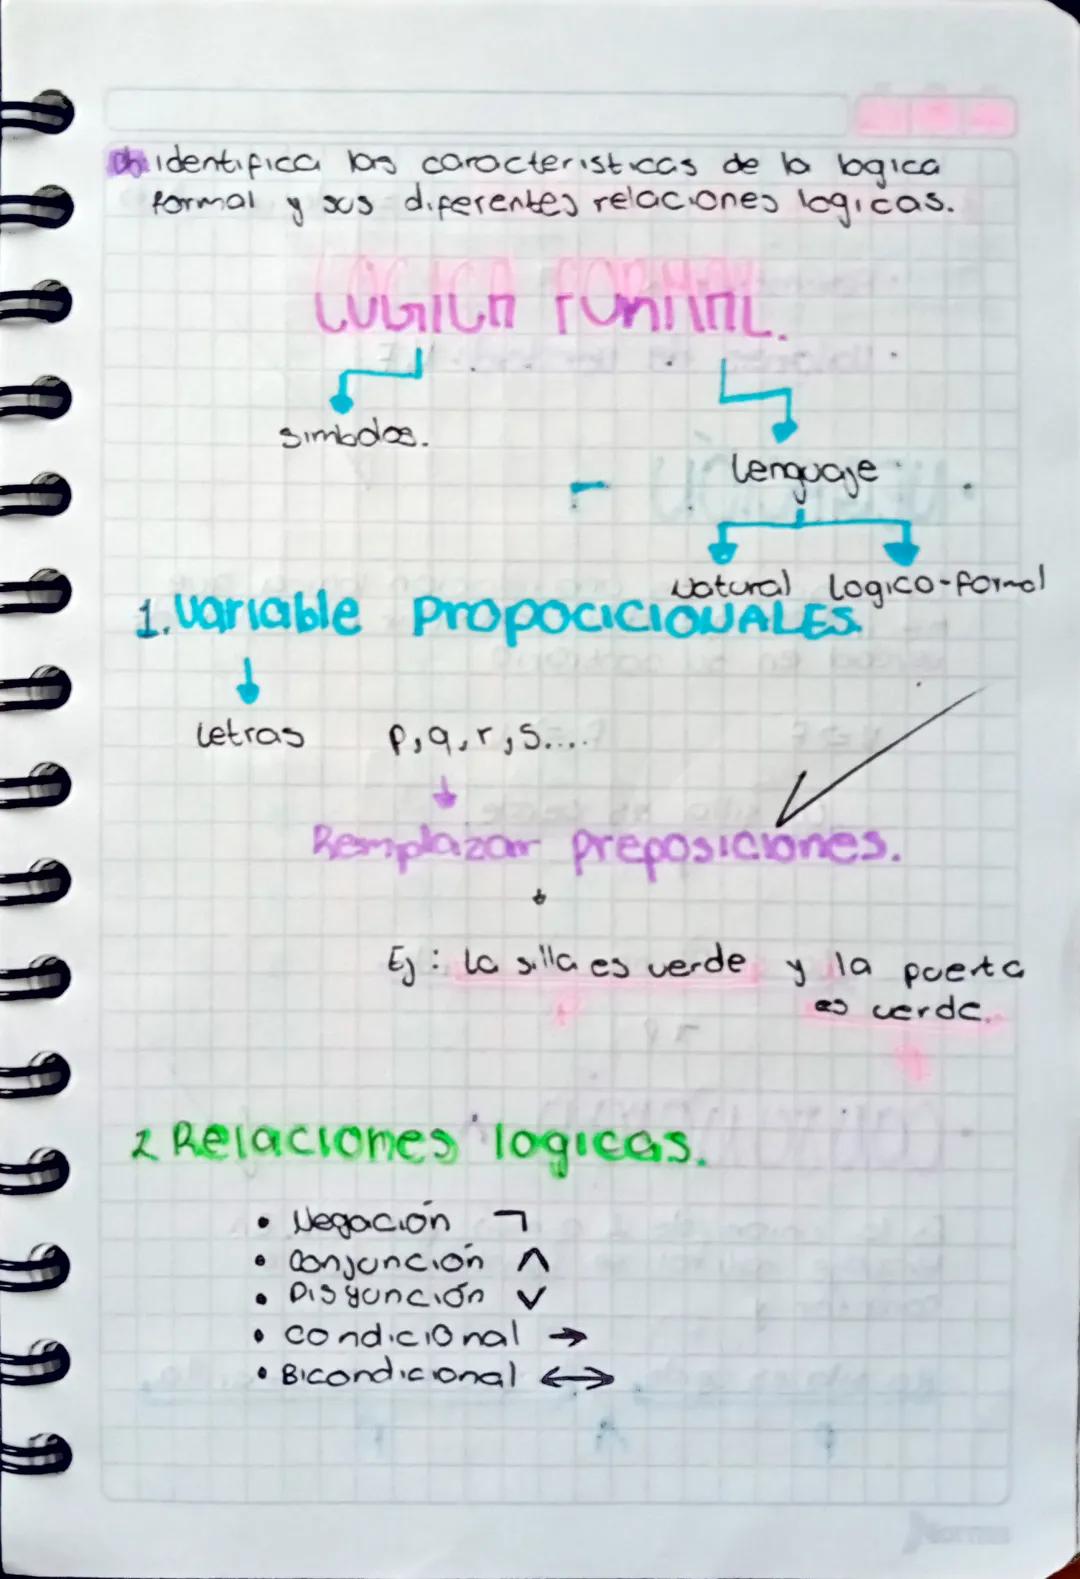 identifica las caracteristicas de la logica
formal y sus diferentes relaciones logicas.
LOGICA FORMAL.
simbolos.
lenguaje
Natural logico-formal
1. Variable PropocicioNALES.
letras p, q, r, s....
Remplazar preposiciones.
Ej: la silla es verde y la puerta
es verde.
2 Relaciones logicas.
• Negación ¬
• Conjunción ∧
• Disyunción ∨
• Condicional →
• Bicondicional ↔
Norma